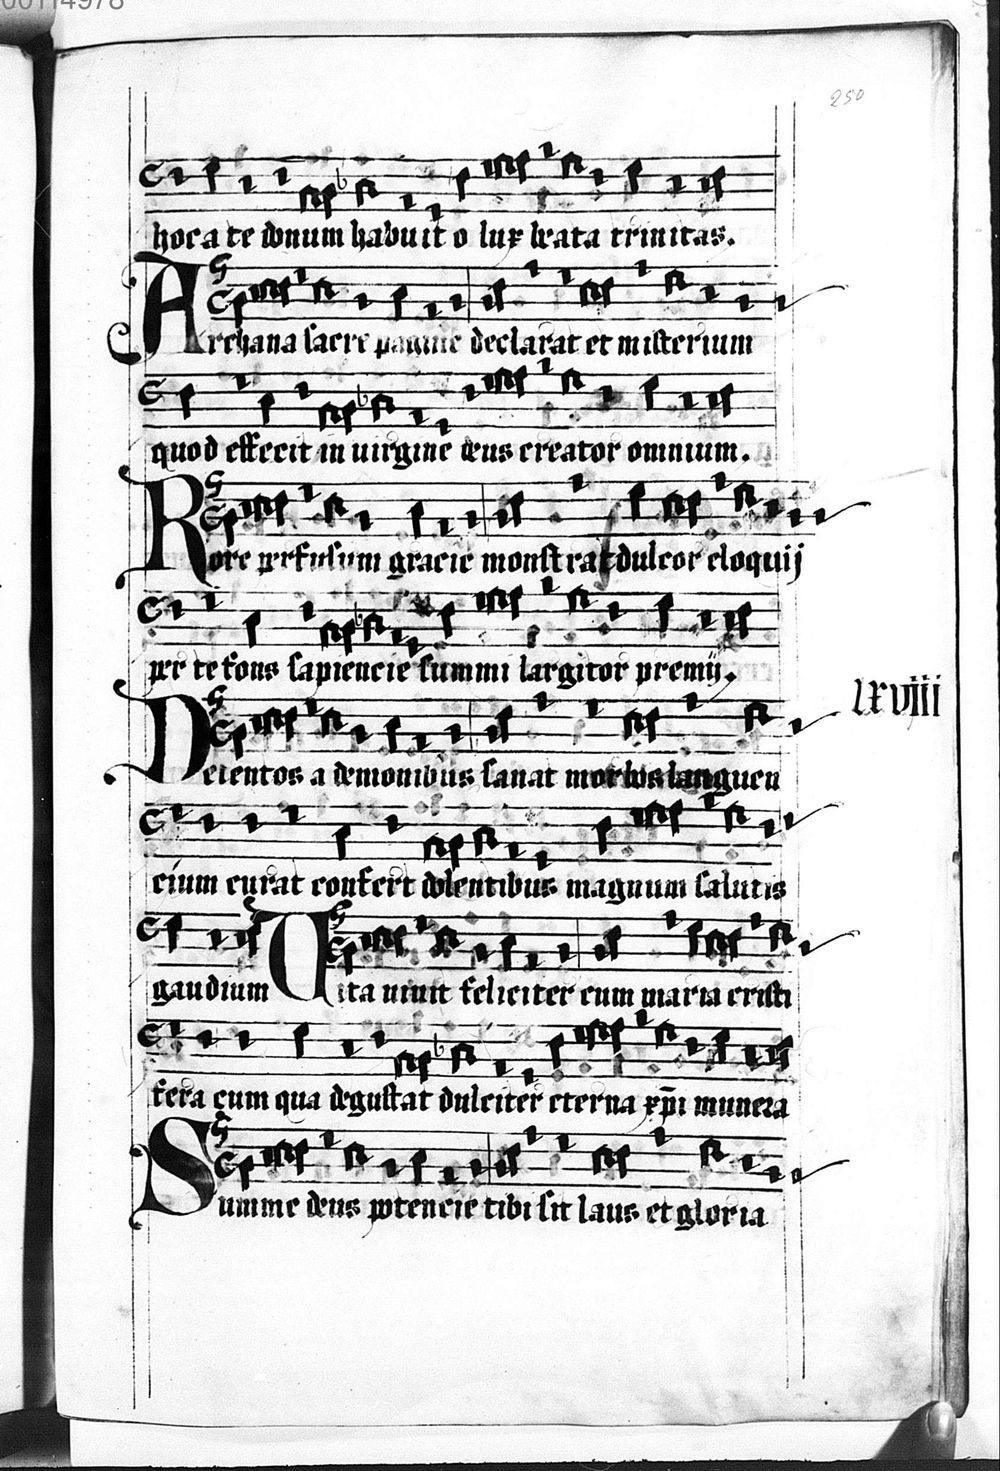 00114978
250
hoc a te donum habuit o lux beata trinitas.
Archana sacre pagine declarat et misterium
quod effecit in uirgine deus creator omnium.
Rore perfusum gracie monstrat dulcor eloquij
per te fons sapiencie summi largitor premij.
lxviij
Detentos a demonibus sanat morbos languen
cium curat confert dolentibus magnum salutis
gaudium Uita uiuit feliciter cum maria cristi
fera cum qua degustat dulciter eterna xp̄i munera
Summe deus potencie tibi sit laus et gloria